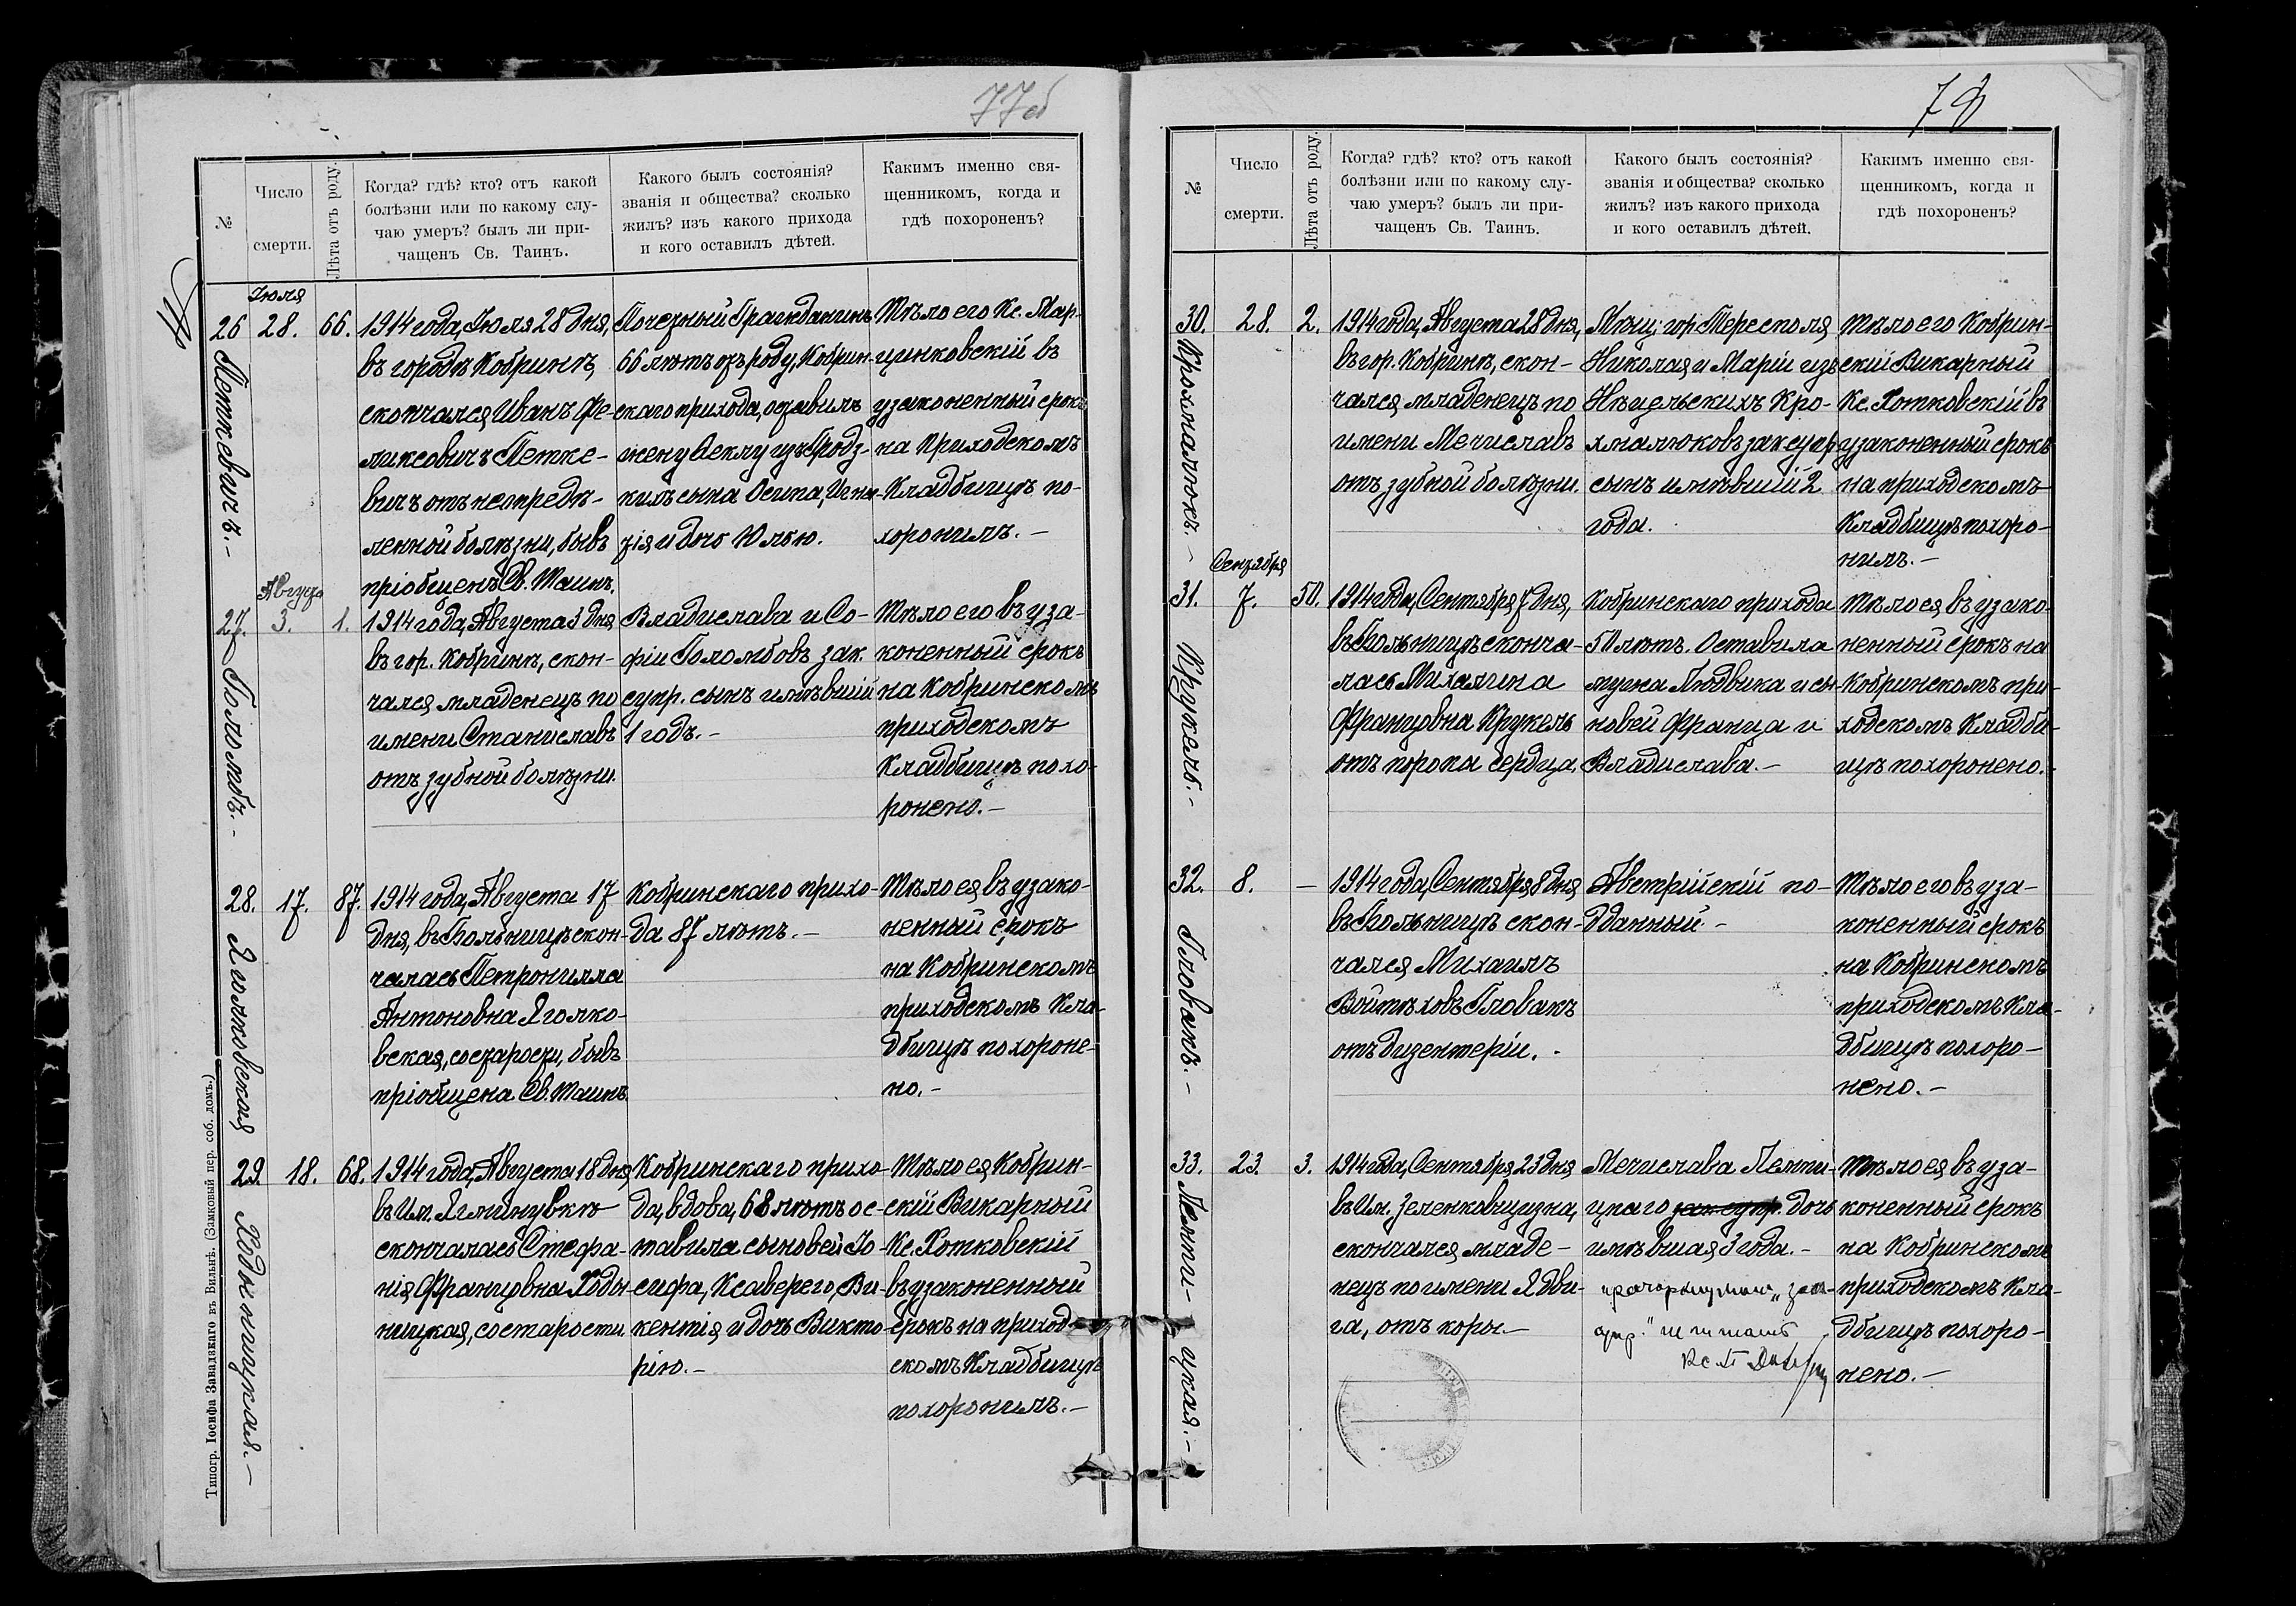 77об
№
Число
смерти.
Лѣта отъ роду.
Когда? гдѣ? кто? отъ какой
болѣзни или по какому слу-
чаю умеръ? былъ ли при-
чащенъ Св. Таинъ.
Какого былъ состоянія?
званія и общества? сколько
жилъ? изъ какого прихода
и кого оставилъ дѣтей.
Какимъ именно свя-
щенникомъ, когда и
гдѣ похороненъ?
Іюля
26
28.
66.
Петкевичъ.-
1914 года, Іюля 28 дня,
въ городѣ Кобринѣ,
скончался Иванъ Фе-
ликсовичъ Петке-
вичъ отъ непредѣ-
ленной болѣзни, бывъ
пріобщенъ Св. Таинъ.
Почезный Гражданинъ
66 лѣтъ отъ роду, Кобрин-
скаго прихода, оставилъ
жену Теклу изъ Гродз-
кихъ сына Осипа, Игна-
зія и дочь Юлью.
Тѣло его Кс. Мар-
цинковскій въ
узаконенный срокъ
на Приходскомъ
Кладбищѣ по-
хоронилъ.-
Августа
27.
3.
1.
Голомбъ.-
1914 года, Августа 3 дня
въ гор. Кобринѣ, скон-
чался младенецъ по
имени Станиславъ
отъ зубной болѣзни.
Владислава и Со-
фіи Голомбовъ зак.
супр. сынъ имѣвшій
1 годъ.-
Тѣло его въ уза-
коненный срокъ
на Кобринскомъ
приходскомъ
Кладбищѣ похо-
ронено.-
28.
17.
87.
Яголковская
1914 года, Августа 17
дня, въ Больницѣ скон-
чалась Петронилла
Антоновна Яголко-
вская, со старости, бывъ
пріобщена Св. Таинъ
Кобринскаго прихо-
да 87 лѣтъ.-
Тѣло ея въ узако-
ненный срокъ
на Кобринскомъ
приходскомъ Кла-
дбищѣ похороне-
но.-
29.
18.
68.
Ходыницкая.-
1914 года, Августа 18 дня
въ Им.
скончалась Стефа-
нія Францовна Ходы-
ницкая, со старости.
Кобринскаго прихо-
да, вдова, 68 лѣтъ ос-
тавила сыновей Іо-
сифа, Ксаверего, Ви-
кентія и дочь Викто-
рію.-
Тѣло ея Кобрин-
скій Викарный
Кс. Хотковскій
въ узаконенный
срокъ на приход-
скомъ Кладбищѣ
похоронилъ.-
Типогр. Іосифа Завадзкаго въ Вильнѣ. (Замковый пер. соб. домъ.)
78
№
Число
смерти.
Лѣта отъ роду.
Когда? гдѣ? кто? отъ какой
болѣзни или по какому слу-
чаю умеръ? былъ ли при-
чащенъ Св. Таинъ.
Какого былъ состоянія?
званія и общества? сколько
жилъ? изъ какого прихода
и кого оставилъ дѣтей.
Какимъ именно свя-
щенникомъ, когда и
гдѣ похороненъ?
30.
28.
2.
Крохмалюкъ.-
1914 года, Августа 28 дня,
въ гор. Кобринѣ, скон-
чался младенецъ по
имени Мечиславъ
отъ зубной болѣзни.
Мѣщ. гор. Тересполя
Николая и Маріи изъ
Нѣцельскихъ Кро-
хмалюковъ зак супр
сынъ имѣвшій 2
года.
Тѣло его Кобрин-
скій Викарный
Кс. Хотковскій въ
узаконенный срокъ
на приходскомъ
Кладбищѣ похоро-
нилъ.-
Сентября
31.
7.
50.
Кружель.-
1914 года, Сентября 7 дня,
въ Больницѣ сконча-
лась Михалина
Францовна Кружель
отъ порока сердца.
Кобринскаго прихода
50 лѣтъ. Оставила
мужа Людвика и сы-
новей Франца и
Владислава.-
Тѣло ея въ узако-
ненный срокъ на
Кобринскомъ при-
ходскомъ Кладби-
щѣ похоронено.-
32.
8.
-
Гловакъ.-
1914 года, Сентября 8 дня
въ Больницѣ скон-
чался Михаилъ
Войтѣховъ Гловакъ
отъ дизентеріи.
Австрійскій по-
дданный.-
Тѣло его въ уза-
коненный срокъ
на Кобринскомъ
приходскомъ Кла-
дбищѣ похоро-
нено.-
33.
23.
3.
1914 года, Сентября 23 дня
въ Им. Зеленковщизна,
скончался младе-
нецъ по имени Ядви-
га, отъ коры.-
Мечислава
цкаго зак супр. дочь
имѣвшая 3 года.-
Тѣло ея въ уза-
коненный срокъ
на Кобринскомъ
приходскомъ Кла-
дбищѣ похоро-
нено.-